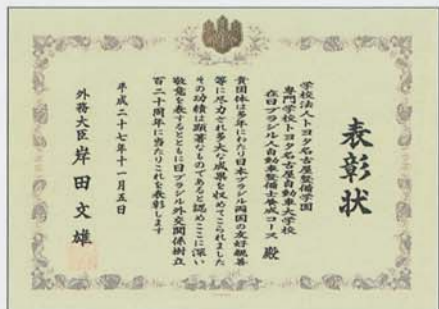 表彰状
学校法人トヨタ名古屋整備学園
専門学校トヨタ名古屋自動車大学校
在日ブラジル人自動車整備士養成コース 殿
貴団体は多年にわたり日本ブラジル両国の友好親善
等に尽力され多大な成果を収めてこられました
その功績は顕著なものであると認めここに深い
敬意を表するとともに日ブラジル外交関係樹立
百二十周年に当たりこれを表彰します
平成二十七年十一月五日
外務大臣 岸田文雄